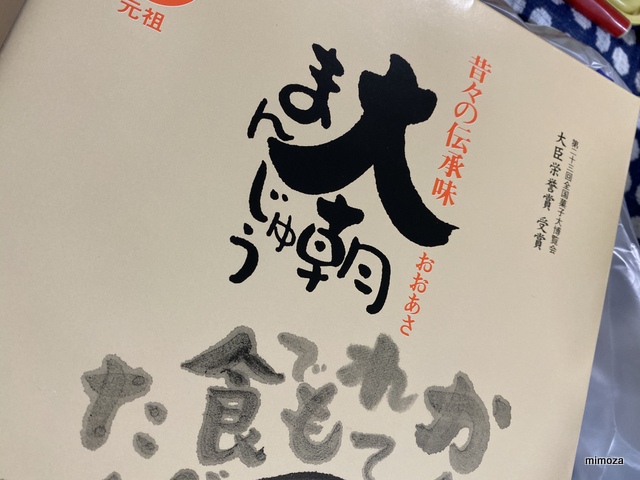 元祖
昔々の伝承味
大朝
まんじゅう
おおあさ
第二十三回全国菓子大博覧会
大臣栄誉賞 受賞
か
れて
でも
食
た
mimoza